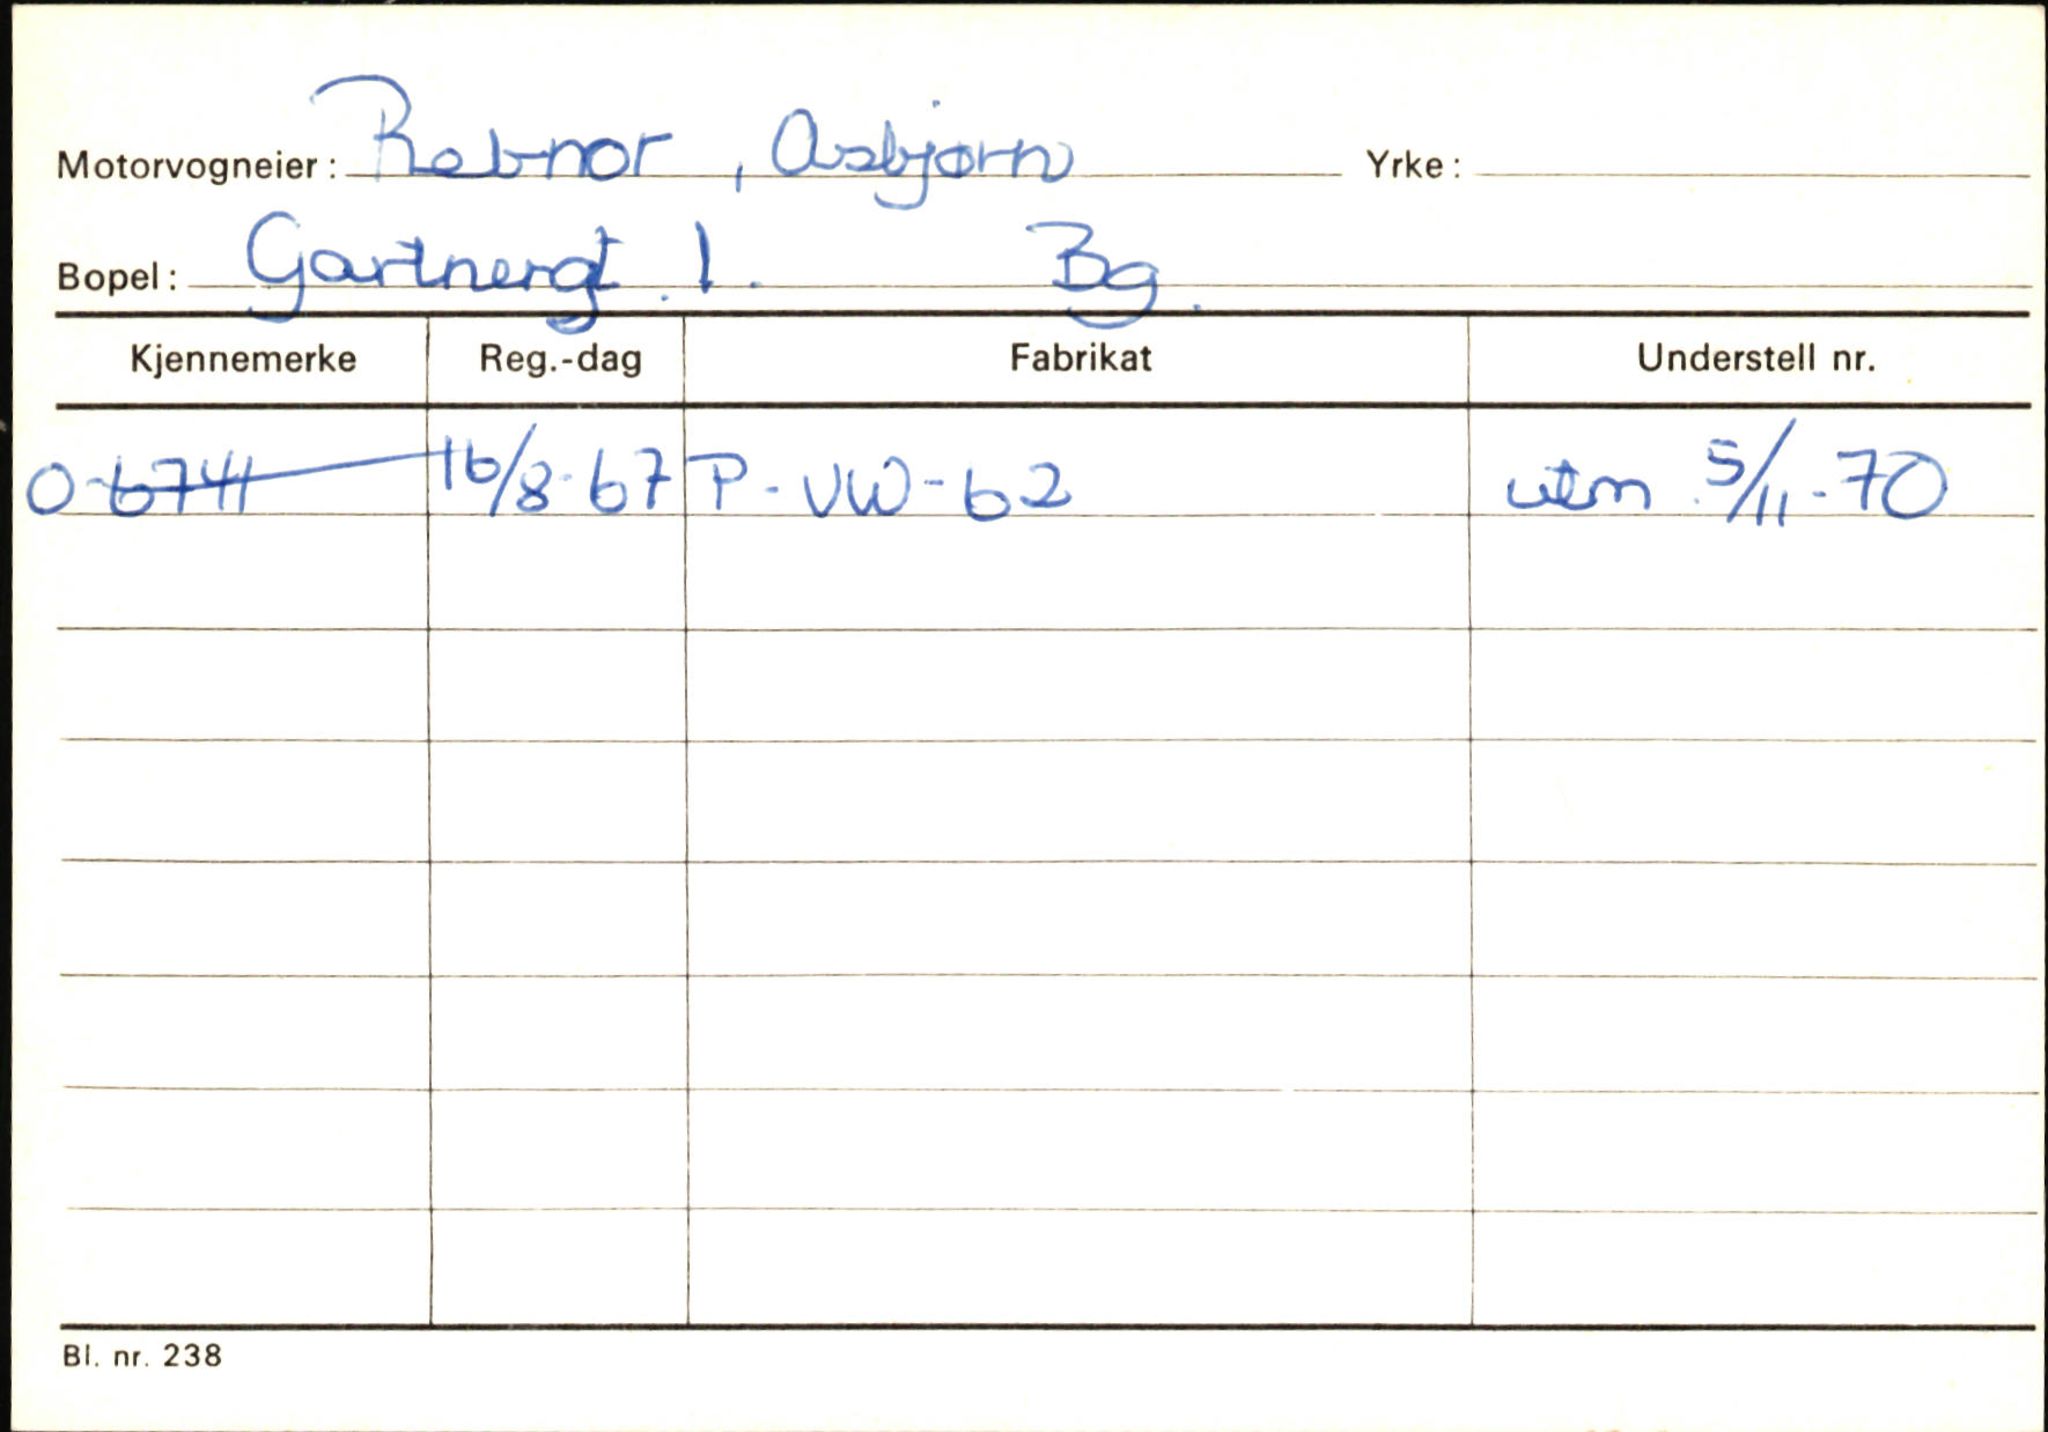 Motorvogneier: Rebnor, Asbjørn Yrke:
Bopel: Gartnergt. 1. Bg.
Kjennemerke Reg.-dag Fabrikat Understell nr.
O-6741 16/8-67 P-VW-62 utm 5/11-70
Bl. nr. 238